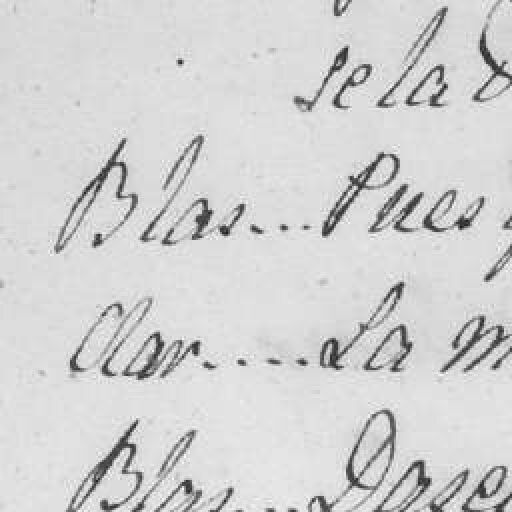 se la
Blas... Pues
Clar..... La
Blas...